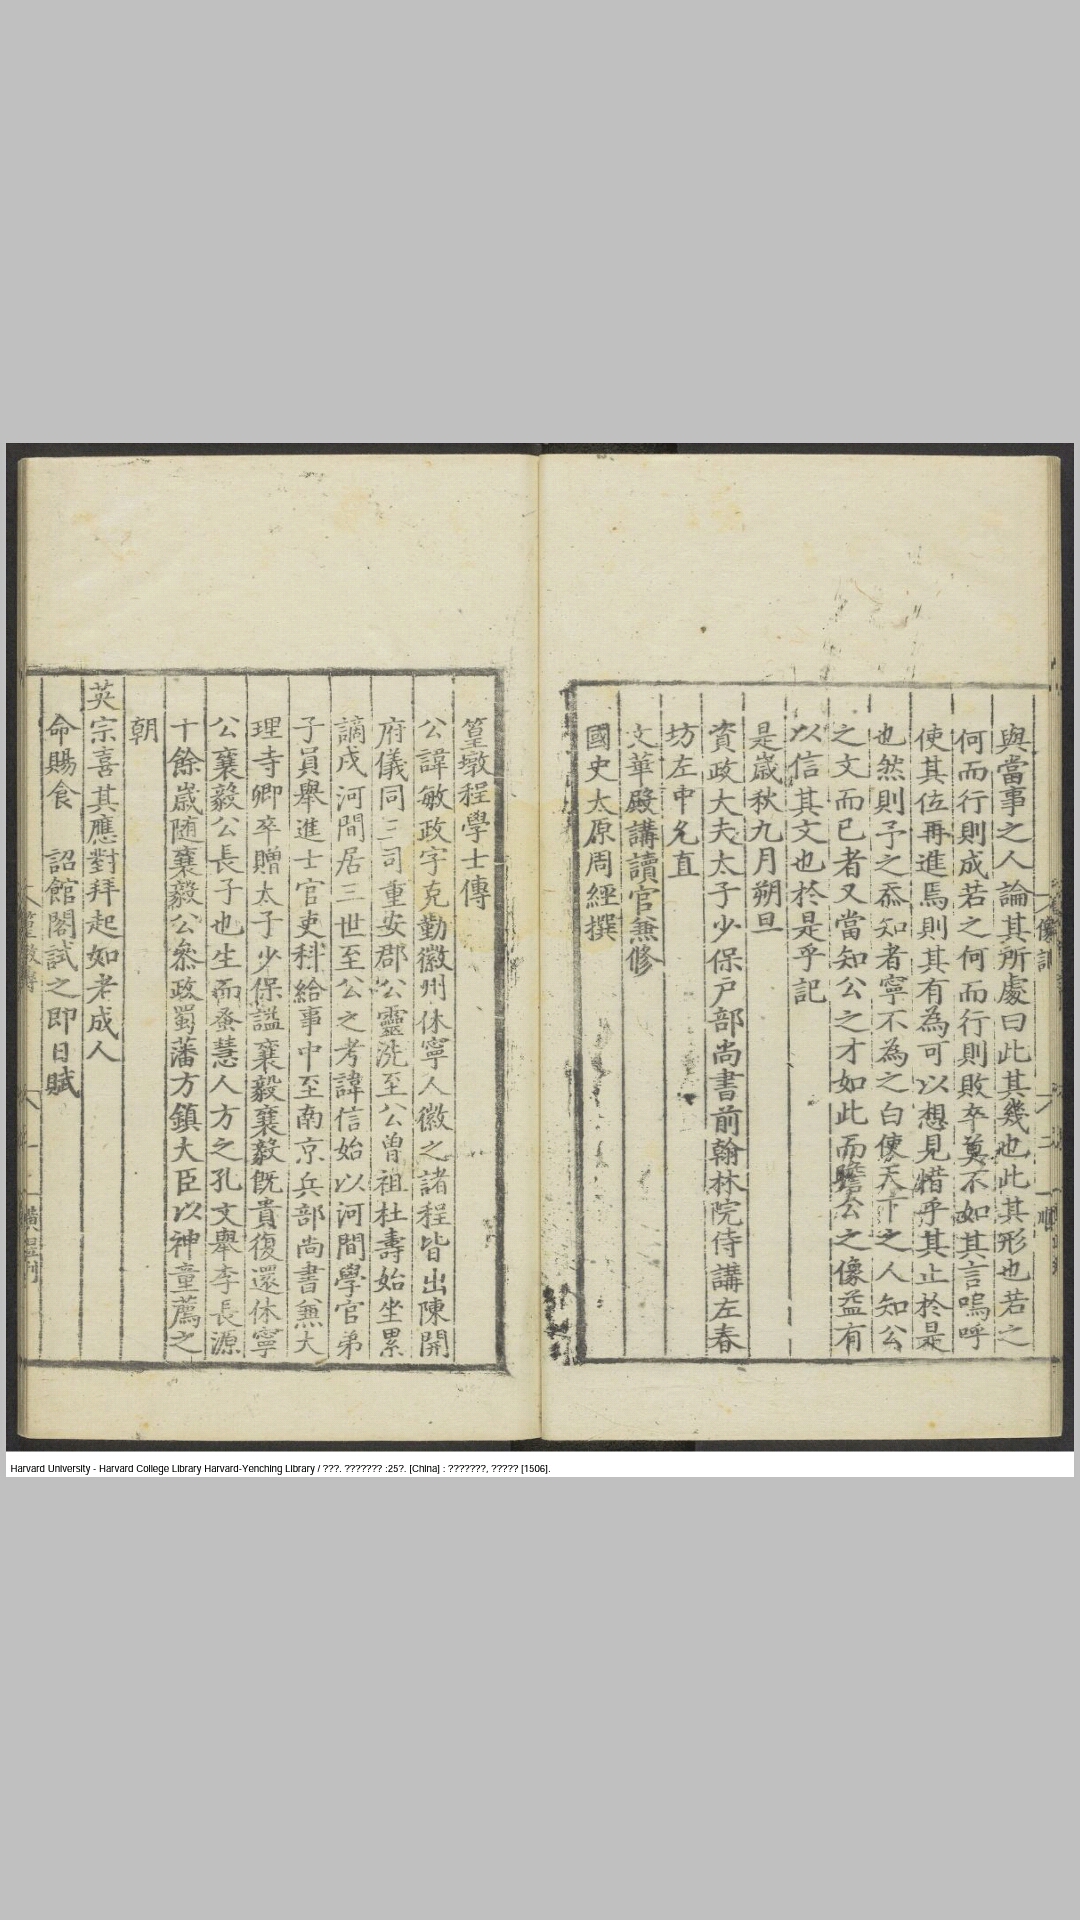 與當事之人論其所處曰此其幾也此其形也若之
何而行則成若之何而行則敗卒莫不如其言嗚呼
使其位再進焉則其有為可以想見惜乎其止於是
也然則予之忝知者寧不為之白使天下之人知公
之文而已者又當知公之才如此而瞻公之像益有
以信其文也於是乎記
是歲秋九月朔旦
資政大夫太子少保戶部尚書前翰林院侍講左春
坊左中允直
文華殿講讀官兼修
國史太原周經撰
篁墩程學士傳
公諱敏政字克勤徽州休寧人徽之諸程皆出陳開
府儀同三司重安郡公靈洗至公曾祖杜壽始坐累
謫戍河間居三世至公之考諱信始以河間學官弟
子員舉進士官吏科給事中至南京兵部尚書兼大
理寺卿卒贈太子少保謚襄毅襄毅既貴復還休寧
公襄毅公長子也生而蚤慧人方之孔文舉李長源
十餘歲随襄毅公叅政蜀藩方鎮大臣以神童薦之
朝
英宗喜其應對拜起如老成人
命賜食 詔館閣試之即日賦
Harvard University - Harvard College Library Harvard-Yenching Library / ???. ??????? :25?. [China] : ???????, ????? [1506].